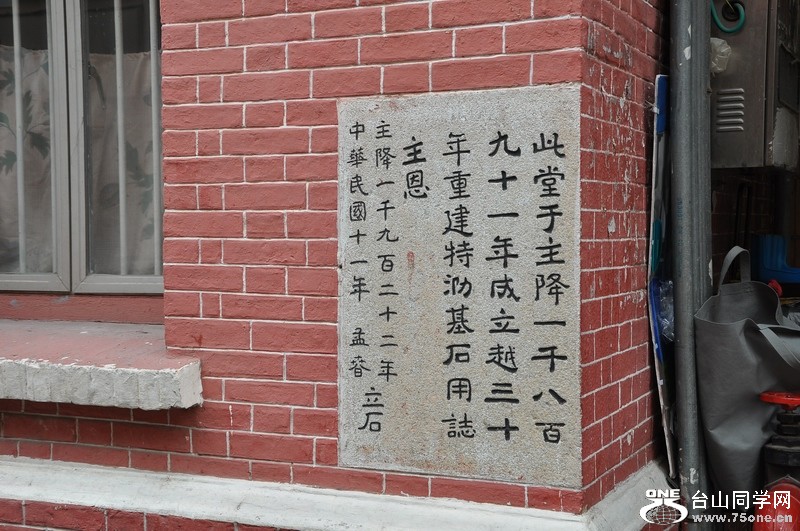 此堂于主降一千八百
九十一年成立越三十
年重建特泐基石用誌
主恩
主降一千九百二十二年
中華民國十一年 孟春 立石
ONE
台山同学网
www.75one.cn